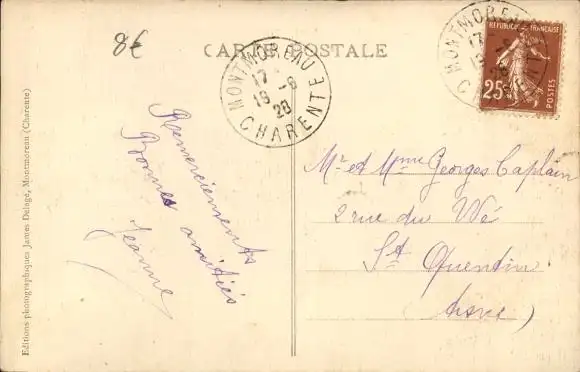 8€
CARTE POSTALE
MONTMOREAU
17
16-6
28
CHARENTE
MONTMOREAU
17
REPUBLIQUE FRANÇAISE
25
POSTES
Remerciements
Bonnes amitiés
Jeanne
Mr et Mme Georges Caplain
2 rue du Wé
St Quentin
Aisne
Editions photographiques James Delage, Montmoreau (Charente)